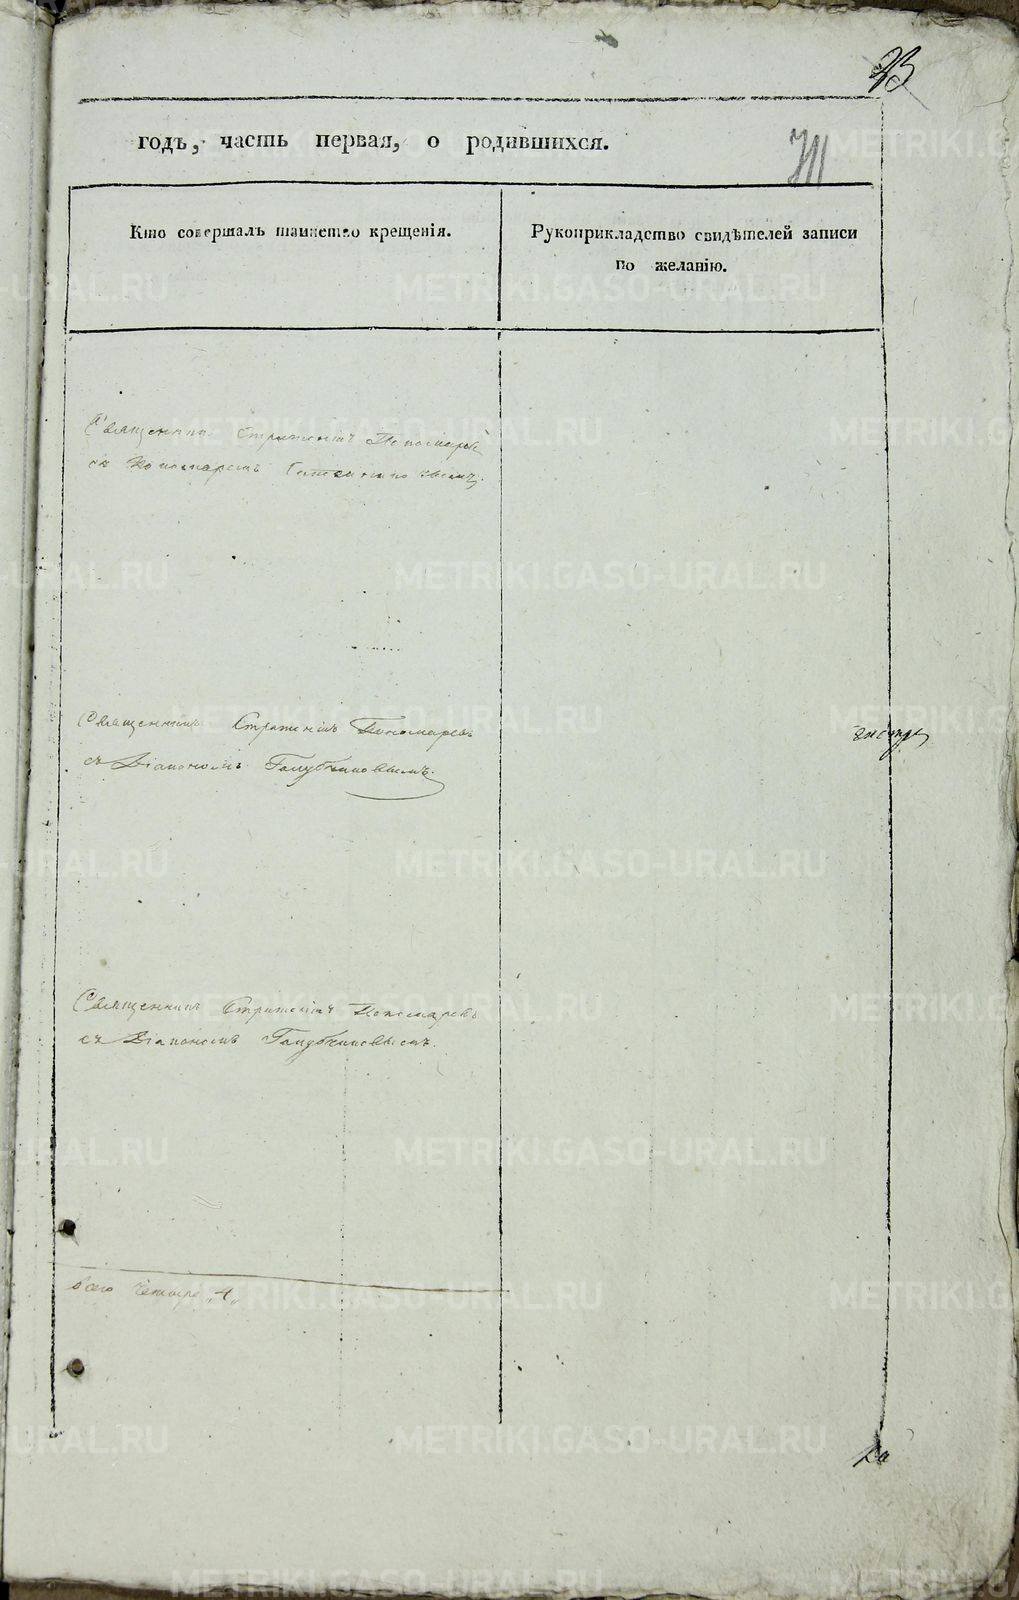 23
годъ, часть первая, о родившихся.
711
Кто совершалъ таинство крещенія.
Рукоприкладство свидѣтелей записи
по желанію.
Священникъ Пономарев
съ Пономаремъ
Священникъ Пономаревъ
съ Діакономъ Голубчиковымъ.
Священникъ Пономаревъ
съ Діакономъ Голубчиковымъ.
всего четыре „4„
METRIKI.GASO-URAL.RU